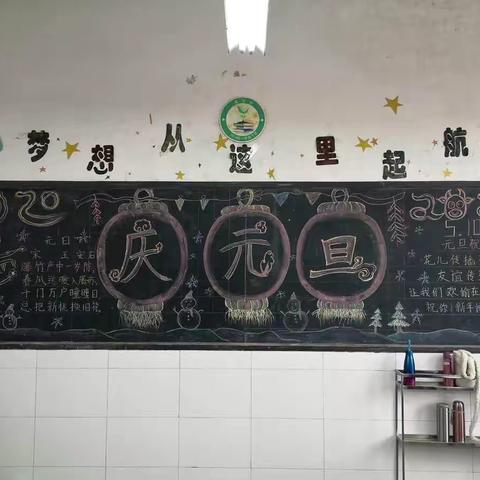 梦想从这里起航
20
庆元旦
元日
宋 王安石
爆竹声中一岁除
春风送暖入屠苏
千门万户曈曈日
总把新桃换旧符
元旦祝
花儿传播
友谊传
让我们欢愉在
祝你:新年